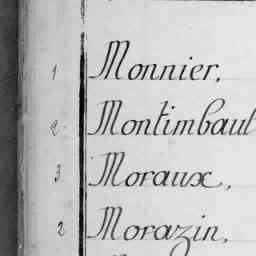 1 Monnier,
2 Montimbaut
3 Moraux,
2 Morazin,